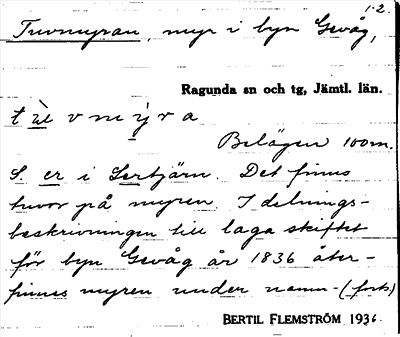 1-2.
Tuvmyran, myr i byn Gevåg,
Ragunda sn och tg, Jämtl. län.
Belägen 100 m.
S. er i Sertjärn. Det finns
tuvor på myren. I delnings-
beskrivningen till laga skiftet
för byn Gevåg år 1836 åter-
finnes myren under namn- (forts)
BERTIL FLEMSTRÖM 1936